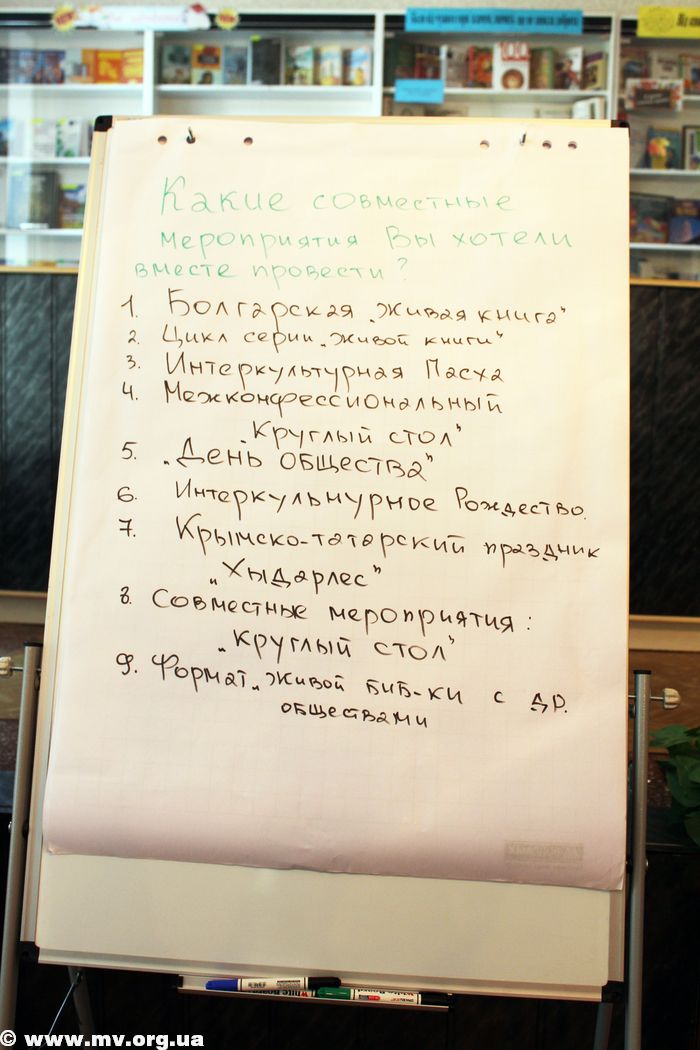 Какие совместные
мероприятия Вы хотели
вместе провести?
1. Болгарская „живая книга"
2. Цикл серии „живой книги"
3. Интеркультурная Пасха
4. Межконфессиональный
„Круглый стол"
5. „День общества"
6. Интеркультурное Рождество.
7. Крымско-татарский праздник
„Хыдарлес"
8. Совместные мероприятия:
„круглый стол"
9. Формат „живой биб-ки с др.
обществами
© www.mv.org.ua